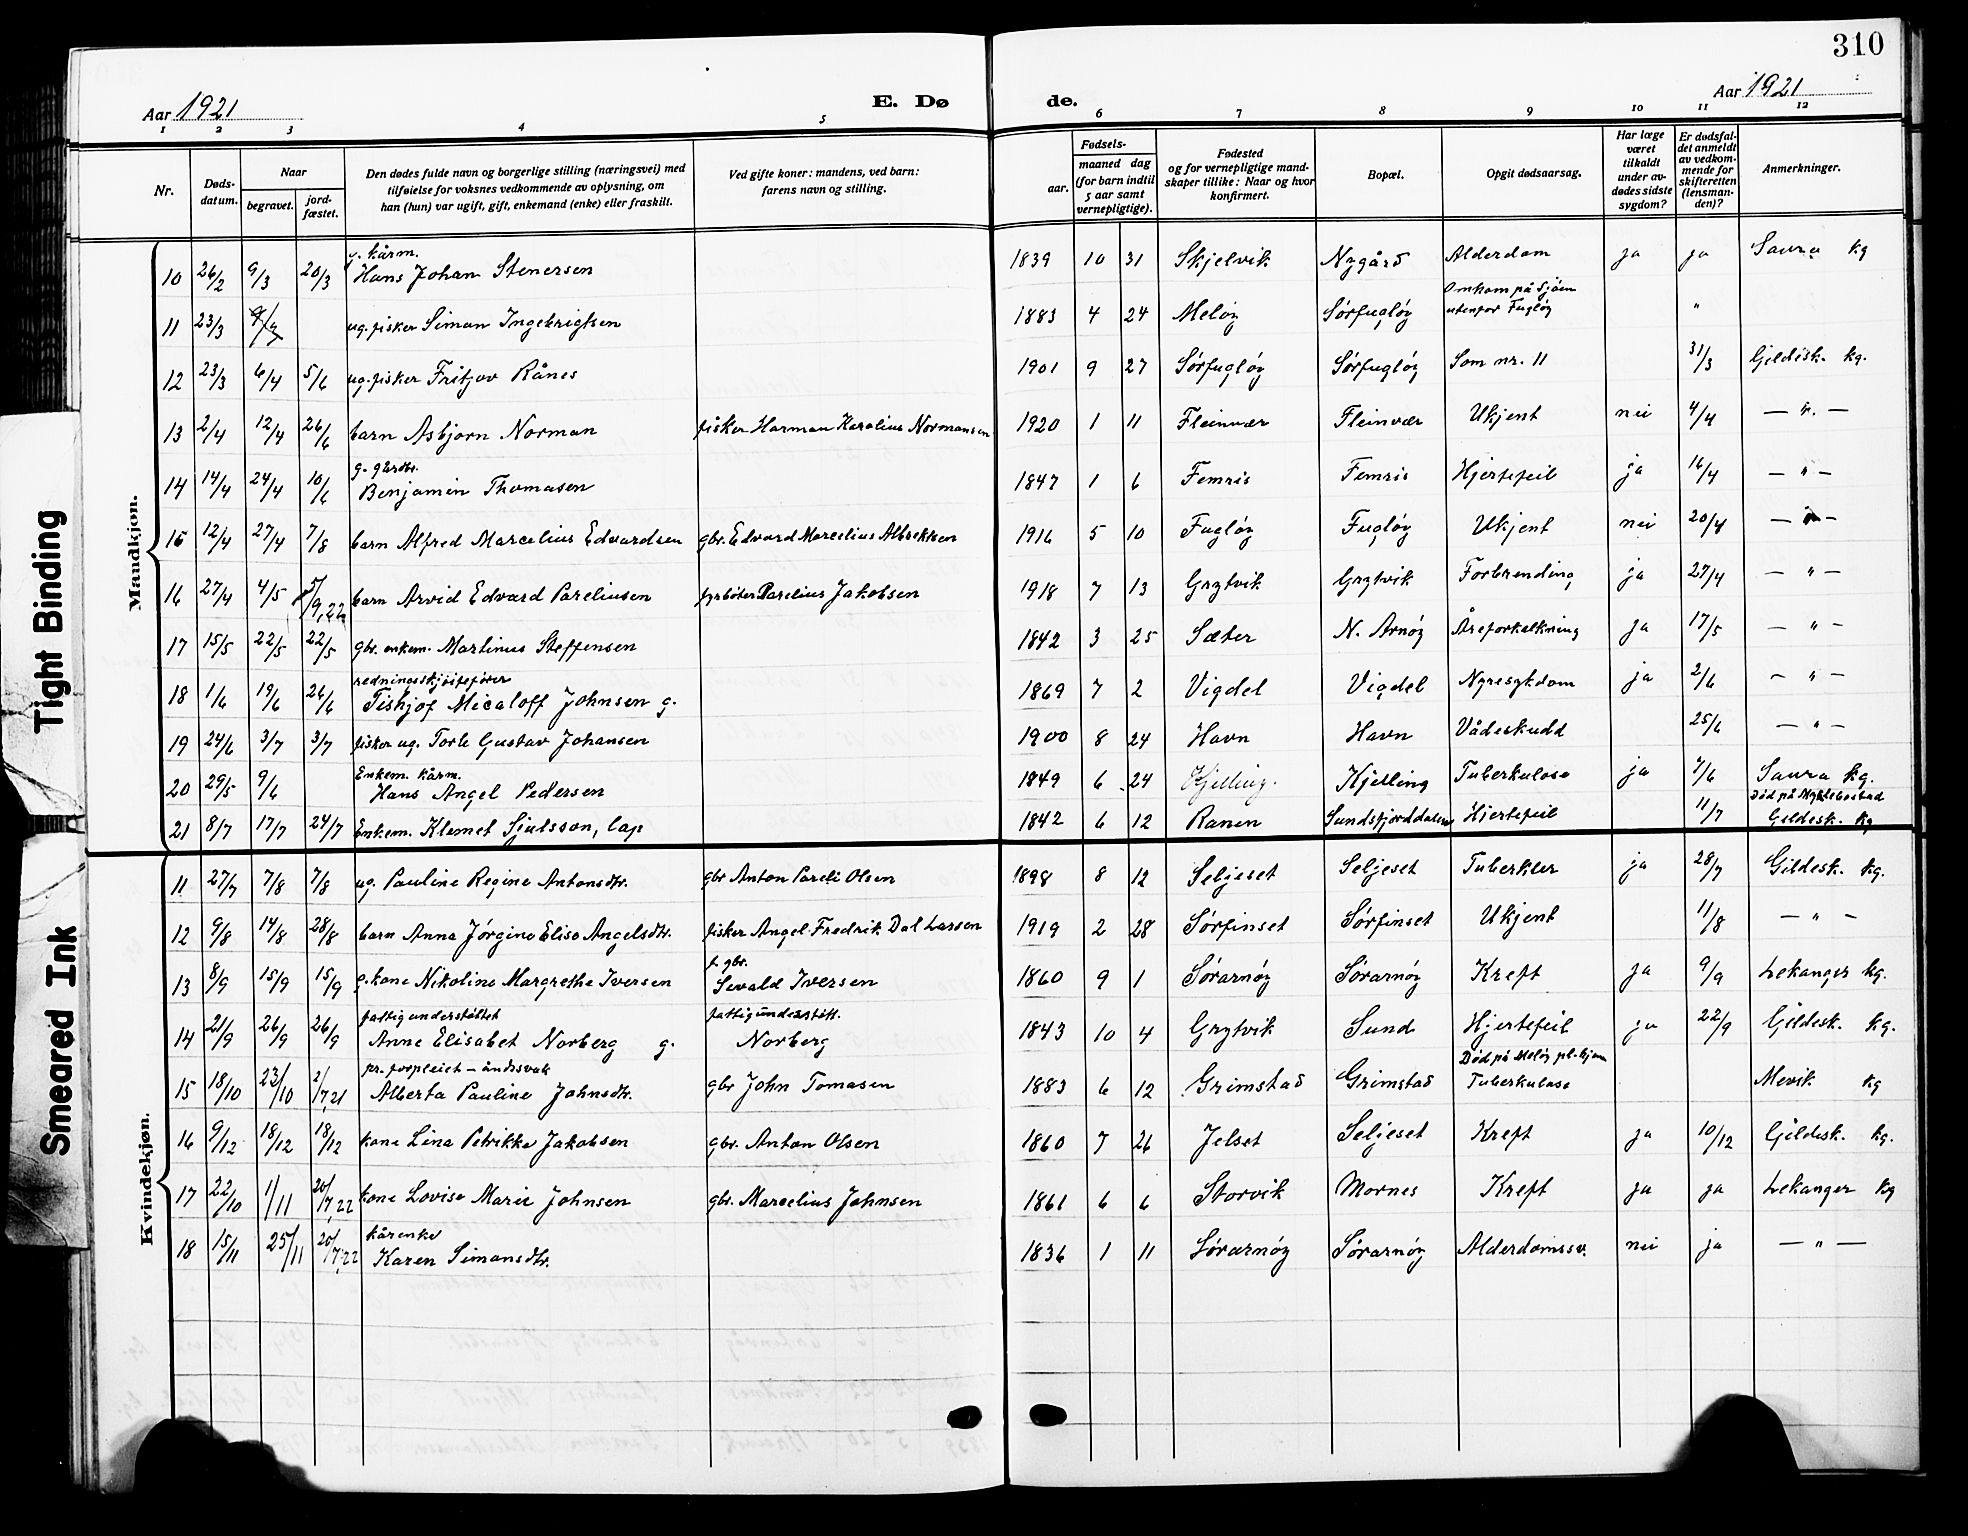 310
Aar 1921
E. Dø
de.
Aar 1921
1 2 3 4 5 6 7 8 9 10 11 12
Nr.
Døds-
datum.
Naar
begravet.
jord-
fæstet.
Den dødes fulde navn og borgerlige stilling (næringsvei) med
tilføielse for voksnes vedkommende av oplysning, om
han (hun) var ugift, gift, enkemand (enke) eller fraskilt.
Ved gifte koner: mandens, ved barn:
farens navn og stilling.
Fødsels-
aar.
maaned dag
(for barn indtil
5 aar samt
vernepligtige).
Fødested
og for vernepligtige mand-
skaper tillike: Naar og hvor
konfirmert.
Bopæl.
Opgit dødsaarsag.
Har læge
været
tilkaldt
under av-
dødes sidste
sygdom?
Er dødsfal-
det anmeldt
av vedkom-
mende for
skifteretten
(lensman-
den)?
Anmerkninger.
Tight Binding
Smeared Ink
Mandkjøn.
g. kårm.
10 26/2 9/3 20/3 Hans Johan Stenersen 1839 10 31 Skjelvik Nygård Alderdom ja ja Saura kg
Omkom på Sjøen
11 23/3 ug. fisker Simon Ingebrigtsen 1883 4 24 Meløy Sørfugløy utenfor Fugløy "
12 23/3 6/4 5/6 ug. fisker Fritjov Rånes 1901 9 27 Sørfugløy Sørfugløy Som nr. 11 31/3 Gildesk. kg.
13 2/4 12/4 26/6 barn Asbjørn Norman fisker Harman Karolius Normansen 1920 1 11 Fleinvær Fleinvær Ukjent nei 4/4 — " —
g. gbrdbr.
14 14/4 24/4 10/6 Benjamin Thomasen 1847 1 6 Femris Femris Hjertefeil ja 16/4 — " —
15 12/4 27/4 7/8 barn Alfred Marcelius Edvardsen gbr. Edvard Marcelius Albrektsen 1916 5 10 Fugløy Fugløy Ukjent nei 20/4 — " —
16 27/4 4/5 5/9,22 barn Arvid Edvard Pareliusen fyrbøter Parelius Jakobsen 1918 7 13 Grytvik Grytvik Forbrending ja 27/4 — " —
17 15/5 22/5 22/5 gbr. enkem. Martinus Steffensen 1842 3 25 Sæter N. Arnøy Åreforkalkning ja 17/5 — " —
redningsskjøitefører
18 1/6 19/6 26/6 Tiskjof Micaloff Johnsen g. 1869 7 2 Vigdel Vigdel Nyresykdom ja 2/6 — " —
19 24/6 3/7 3/7 fisker ug. Torle Gustav Johansen 1900 8 24 Havn Havn Vådeskudd 25/6 — " —
Enkem. kårm.
20 29/5 9/6 Hans Angel Pedersen 1849 6 24 Kjelling. Kjelling Tuberkulose ja 7/6 Saura kg.
Død på Myklebostad
21 8/7 17/7 24/7 Enkem. Klemet Sjulsson, lap 1842 6 12 Ranen Sundsfjorddalen Hjertefeil 11/7 Gildesk. kg
Kvindekjøn.
11 27/7 7/8 7/8 ug. Pauline Regine Antonsdtr. gbr Anton Pareli Olsen 1898 8 12 Seljeset Seljeset Tuberkler ja 28/7 Gildesk. kg.
12 9/8 14/8 28/8 barn Anna Jørgine Elise Angelsdtr. fisker Angel Fredrik Dal Larsen 1919 2 28 Sørfinset Sørfinset Ukjent 11/8 — " —
f. gbr.
13 8/9 15/9 15/9 g. kone Nikoline Margrethe Iversen Sevald Iversen 1860 9 1 Sørarnøy Sørarnøy Kreft ja 9/9 Lekanger kg.
fattigunderstøttet fattigunderstøtt.
14 21/9 26/9 26/9 Anne Elisabet Norberg g. Norberg 1843 10 4 Grytvik Sund Hjertefeil ja 22/9 Gildesk. kg.
pr. forpleiet – åndssvak Død på Meløy pl.hjem
15 18/10 23/10 2/7,21 Alberta Pauline Johnsdtr. gbr John Tomasen 1883 6 12 Grimstad Grimstad Tuberkulose Mevik kg
16 9/12 18/12 18/12 kone Lina Petrikke Jakobsen gbr. Anton Olsen 1860 7 26 Jelset Seljeset Kreft ja 10/12 Gildesk. kg.
17 22/10 1/11 20/7,22 kone Lovise Marie Johnsen gbr. Marcelius Johnsen 1861 6 6 Storvik Mornes Kreft ja ja Lekanger kg
kårenke
18 15/11 25/11 20/7,22 Karen Simonsdtr. 1836 1 11 Sørarnøy Sørarnøy Alderdomssv. nei ja — " —